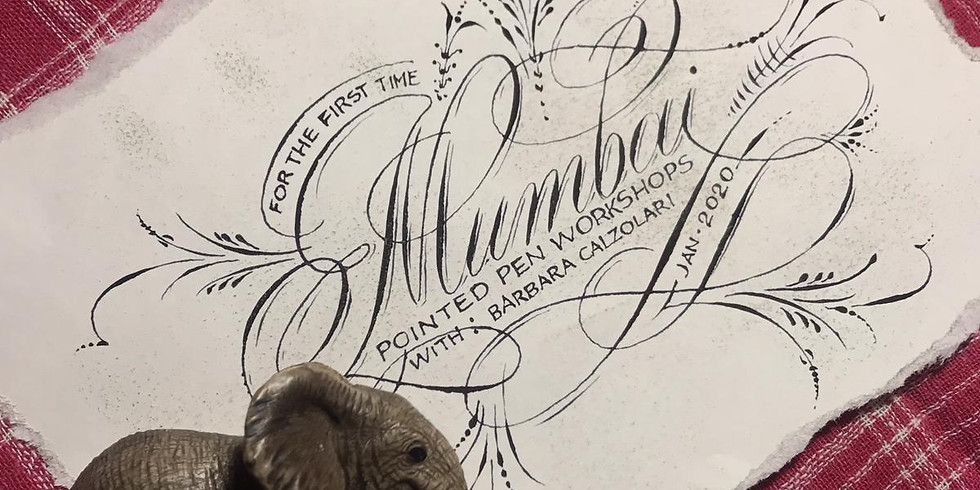 FOR THE FIRST TIME
Mumbai
POINTED PEN WORKSHOPS
WITH: BARBARA CALZOLARI
JAN·2020·